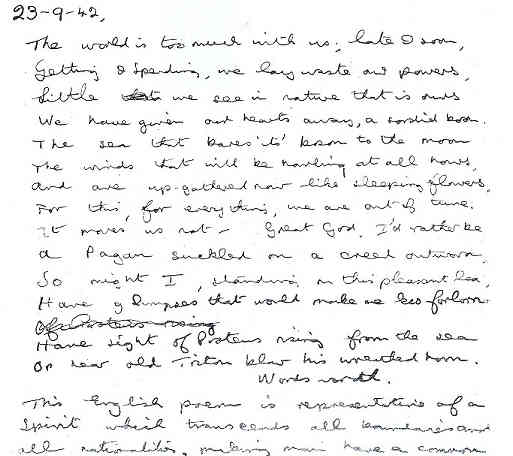 23-9-42,
The world is too much with us; late & soon,
Getting & Spending, we lay waste our powers,
Little we see in nature that is ours
We have given our hearts away, a sordid boon.
The sea that bares its' bosom to the moon
The winds that will be howling at all hours,
And are up-gathered now like sleeping flowers,
For this, for everything, we are out of tune.
It moves us not - Great God, I'd rather be
a Pagan suckled on a creed outworn,
So might I, standing on this pleasant lea,
Have glimpses that would make me less forlorn
Have sight of Proteus rising from the sea
Or hear old Triton blow his wreathed horn.
Wordsworth.
This English poem is representative of a
Spirit which transcends all boundaries and
all nationalities, making man have a common